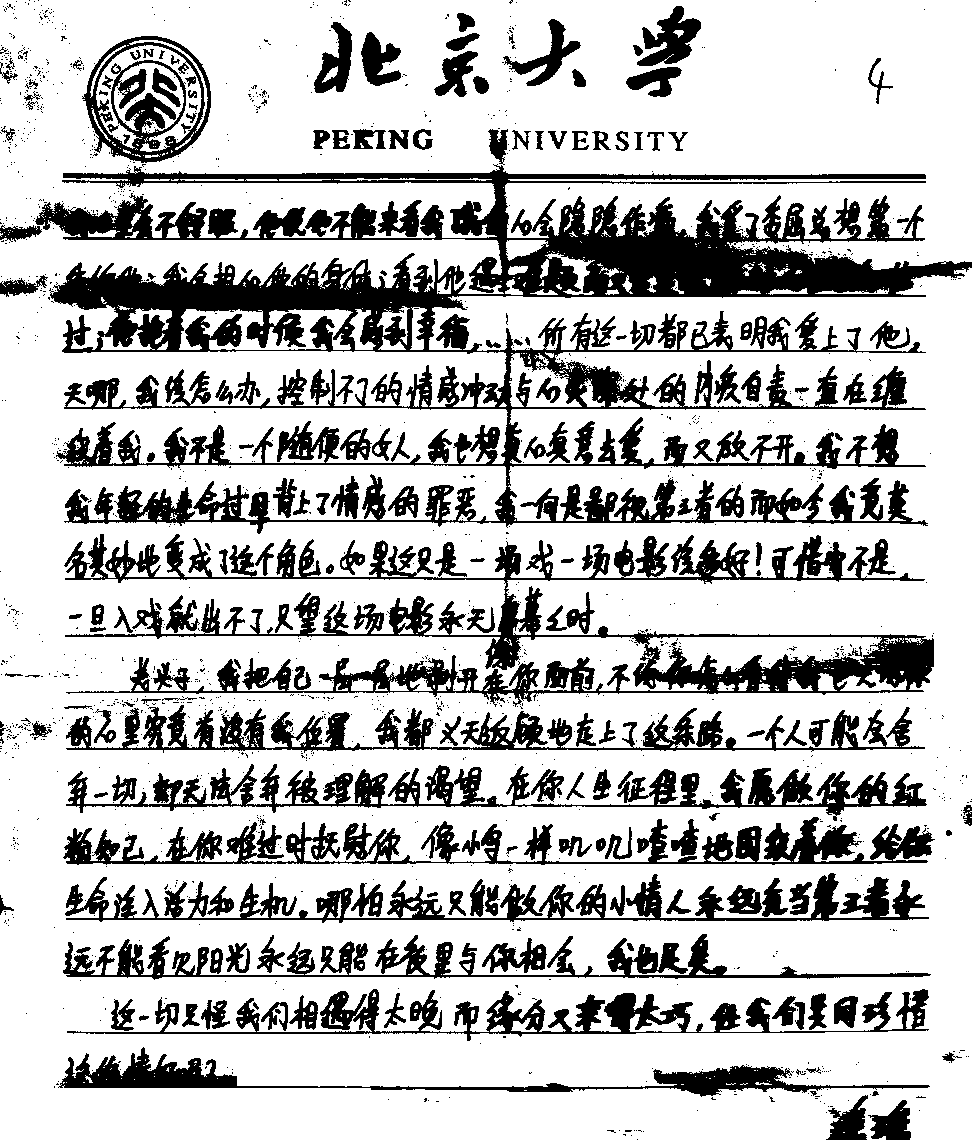 北京大学
4
PEKING UNIVERSITY
PEKING UNIVERSITY 1898
不舒服,他说他不能来看我 心会隐隐作痛,我受了委屈总想第一个
我会想 他的 看到他
过;他抱着我的时候我会感到幸福,……所有这一切都已表明我爱上了他。
天哪,我该怎么办,控制不了的情感冲动与心灵深处的内疚自责一直在缠
绕着我。我不是一个随便的女人,我也想真心真意去爱,而又放不开。我不想
我年轻的生命过早背上了情感的罪恶,我一向是鄙视第三者的而如今我竟莫
名其妙地变成了这个角色。如果这只是一场戏一场电影该多好!可惜它不是,
一旦入戏就出不了,只望这场电影永无落幕之时。
老头子,我把自己一层一层地剥开在你面前,不
的心里究竟有没有我位置,我都义无反顾地走上了这条路。一个人可能会舍
弃一切,却无法舍弃被理解的渴望。在你人生征程里,我愿做你的红
粉知己,在你难过时抚慰你,像小鸟一样叽叽喳喳地围绕着你,给你
生命注入活力和生机。哪怕永远只能做你的小情人永远充当第三者永
远不能看见阳光永远只能在夜里与你相会,我也足矣。
这一切只怪我们相遇得太晚而缘分又来得太巧,让我们共同珍惜
这份情